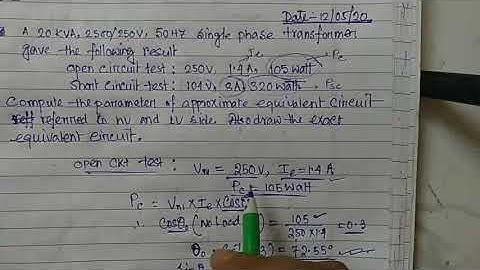 Date:-12/05/20
A 20KVA, 2500/250V, 50HZ single phase transformer
gave the following result
Ie Pc
open circuit test : 250V, 1.4A, 105 watt
Short circuit test : 104V, 8A, 320 watt Psc
Compute the parameter of approximate equivalent circuit
referred in HV and LV side. Also draw the exact
equivalent circuit.
open ckt test : Vn1 = 250V, Ie = 1.4A
Pc = 105 watt
Pc = Vn1 × Ie × Cosθ
∴ Cosθo (No Load = 105 / 250×1.4 = 0.3
θo = = 72.55°